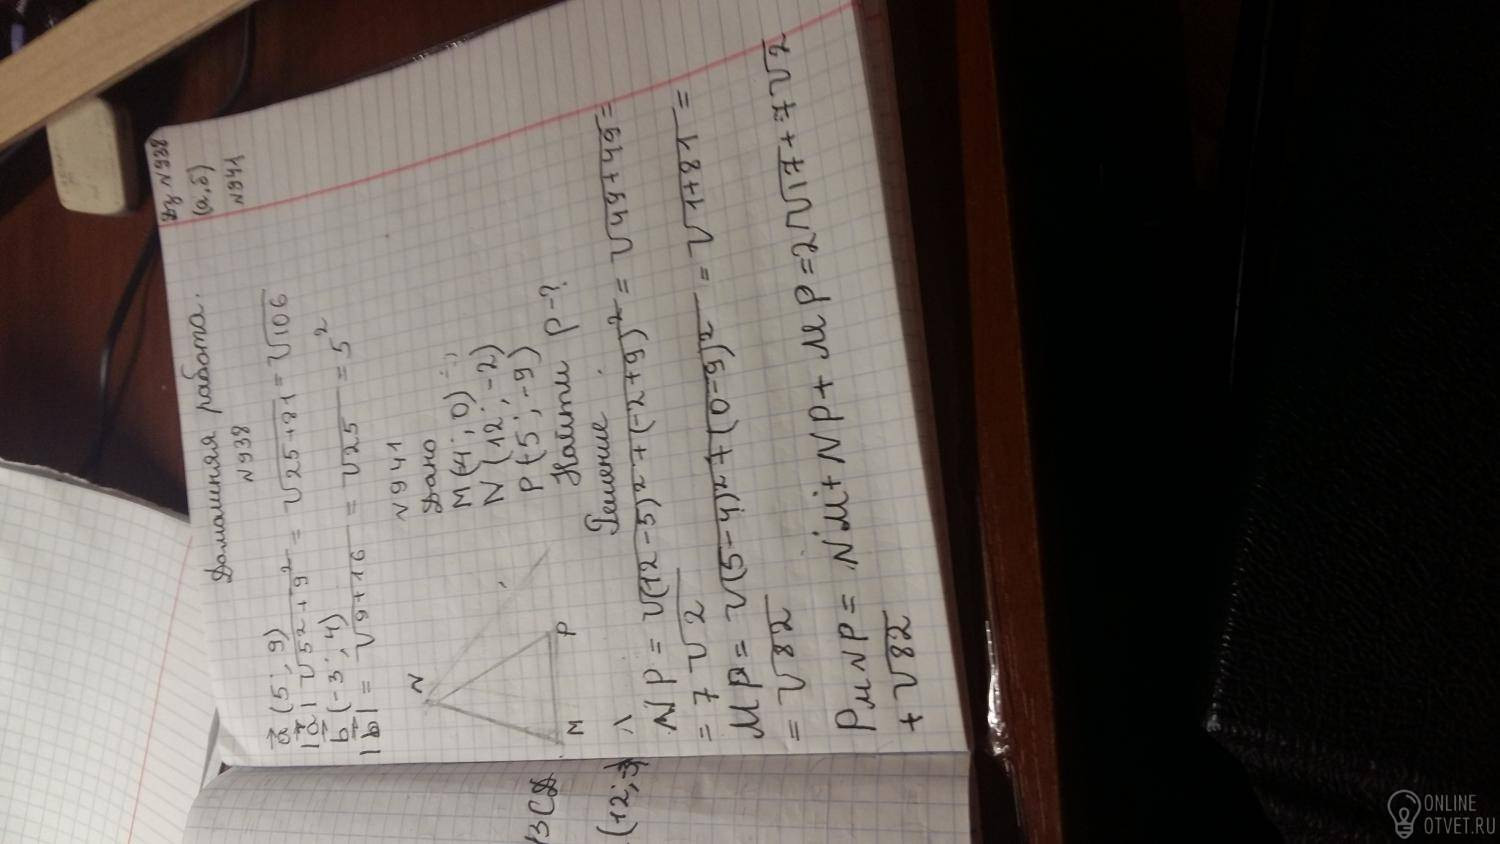 Дз №938
(а,б)
№941
Домашняя работа.
№938
a (5; 9)
|a| √5²+9² = √25+81 = √106
b (-3; 4)
|b| = √9+16 = √25 = 5²
№941
Дано
M(4; 0)
N (12; -2)
P(5; -9)
Найти P-?
N
M
P
Решение
NP = √(12-5)²+(-2+9)² = √49+49 =
= 7√2
MP = √(5-4)²+(0-9)² = √1+81 =
= √82
PMNP = NM + NP + MP = 2√17 + 7√2
+ √82
(12;
ONLINE
OTVET.RU